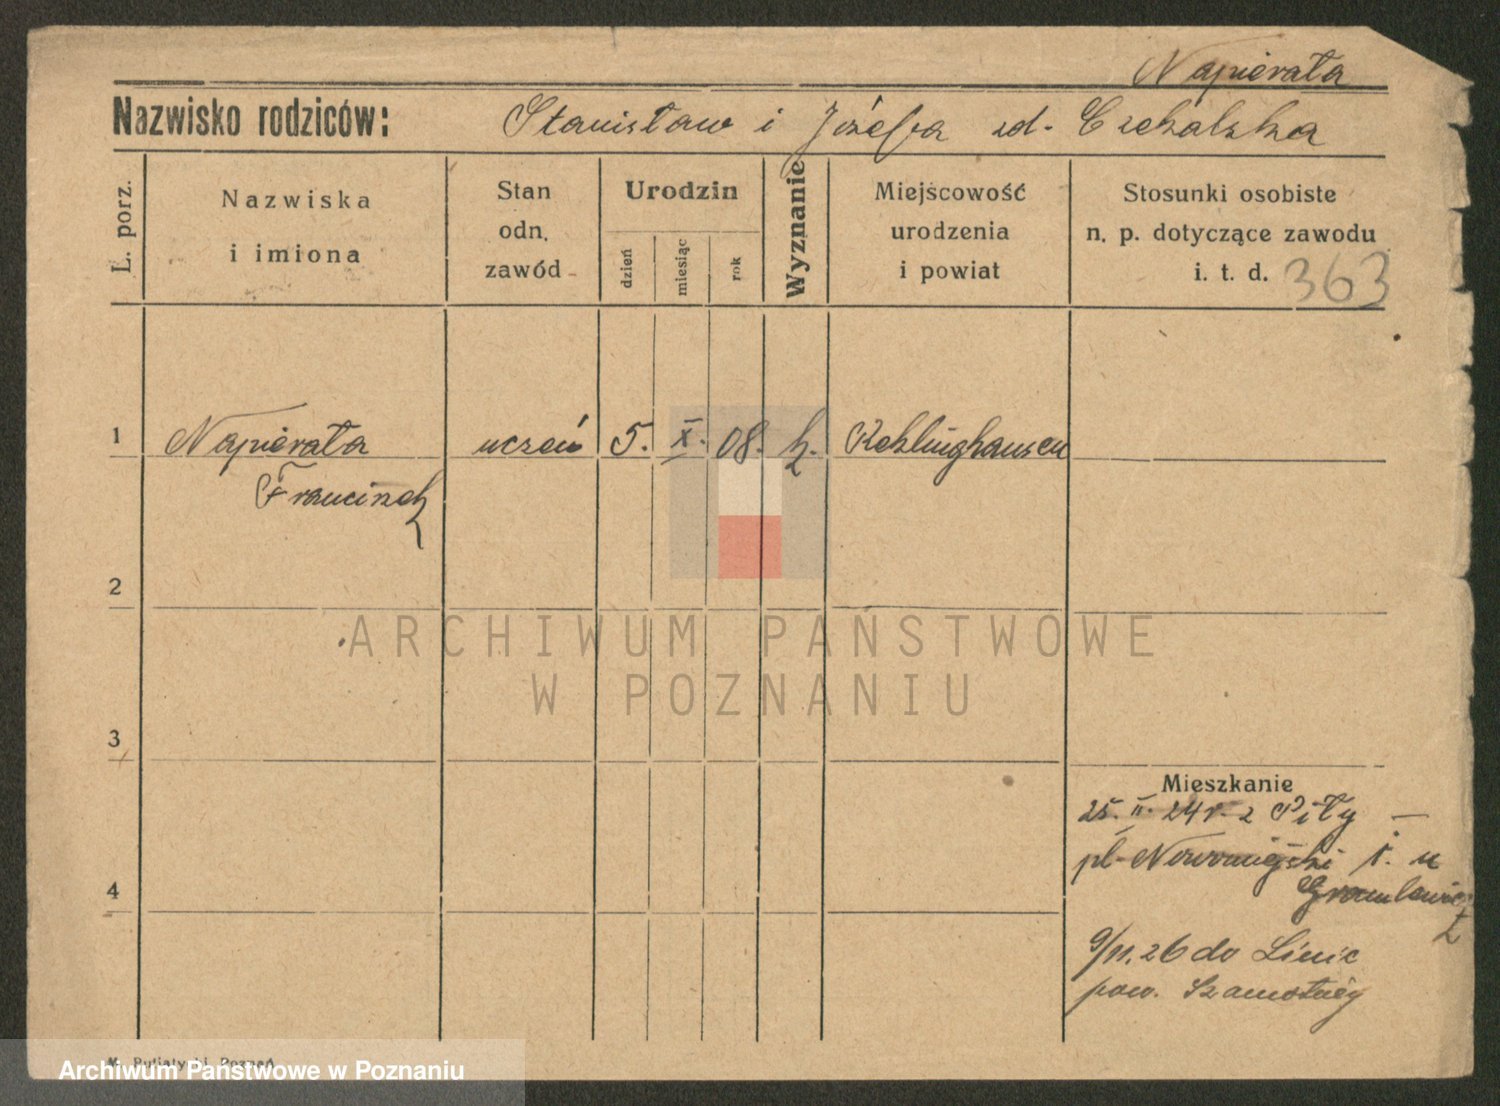 Napierała
Nazwisko rodziców: Stanisław i Józefa zd. Czekalska
L. porz.
Nazwiska
i imiona
Stan
odn.
zawód
Urodzin
dzień
miesiąc
rok
Wyznanie
Miejscowość
urodzenia
i powiat
Stosunki osobiste
n. p. dotyczące zawodu
i. t. d. 363
1 Napierała uczeń 5. X. 08. k. Reklinghausen
Franciszek
2
3
4
Mieszkanie
25. II. 24 r. z Piły —
pl. Nowomiejski
9/11. 26 do
pow. Szamotuły
ARCHIWUM PAŃSTWOWE
W POZNANIU
Archiwum Państwowe w Poznaniu